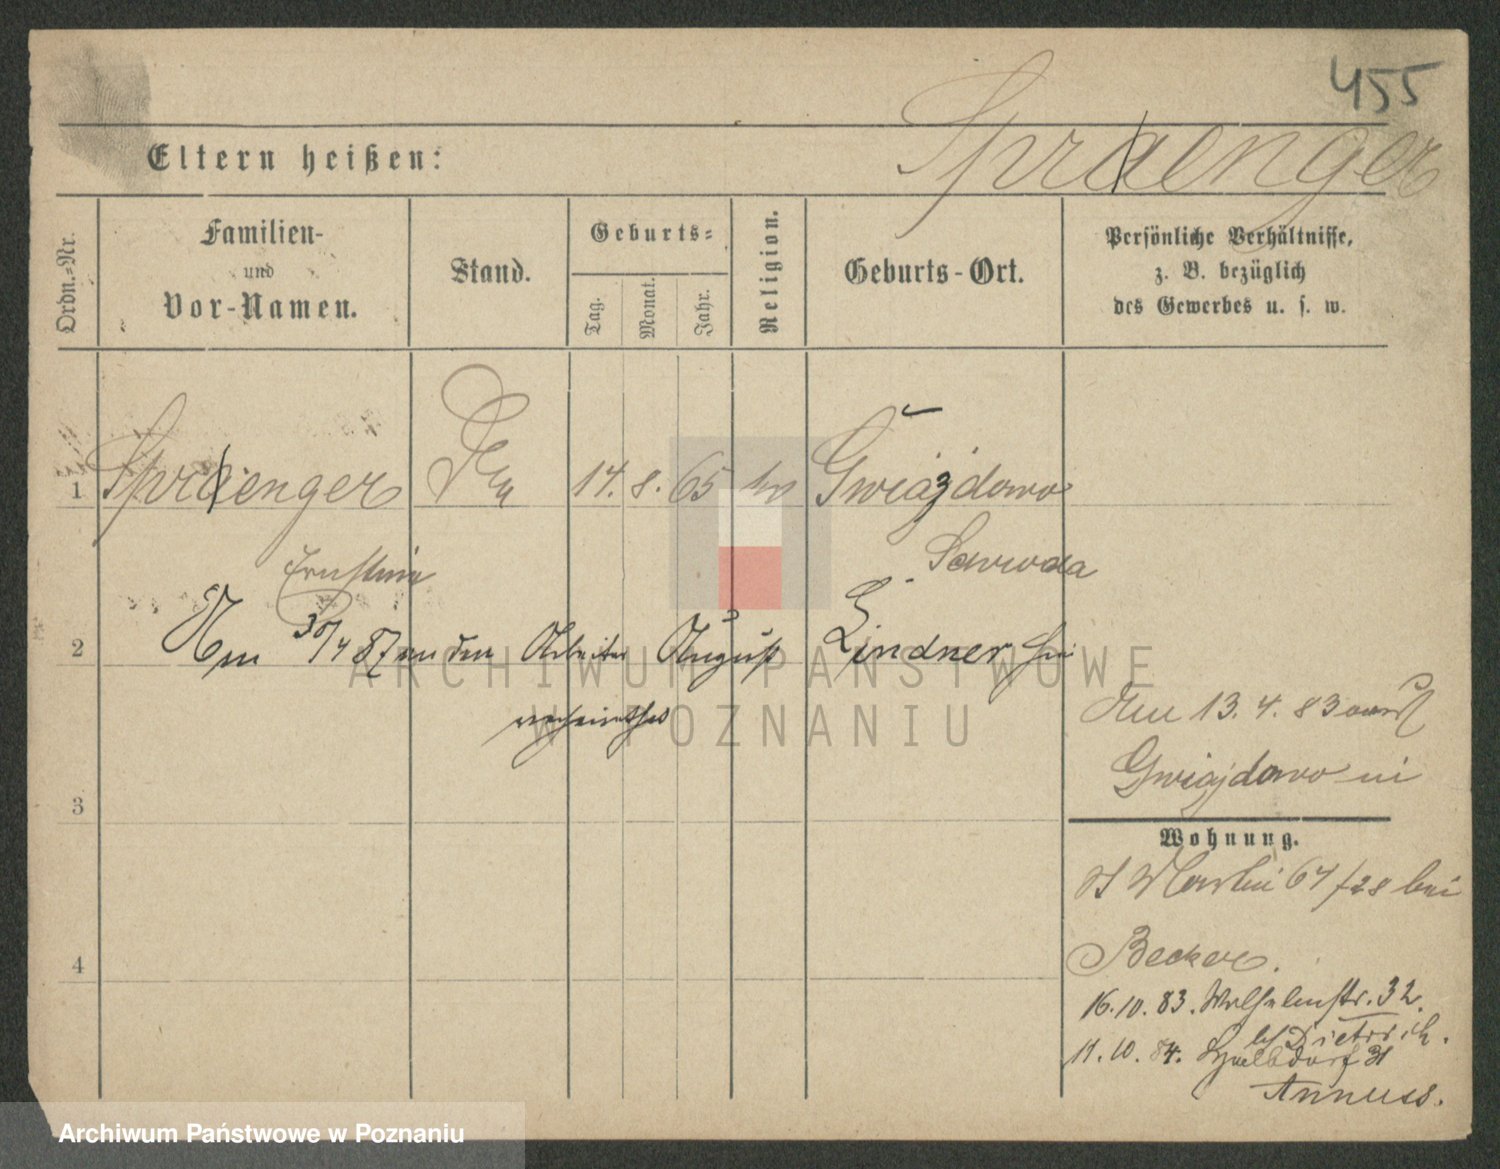 455
Eltern heißen:
Spraenger
Ordn.-Nr.
Familien-
und
Vor-Namen.
Stand.
Geburts-
Tag.
Monat.
Jahr.
Religion.
Geburts-Ort.
Persönliche Verhältnisse,
z. B. bezüglich
des Gewerbes u. s. w.
1
14. 8. 65
Gwiazdowo
Ernstine
Sawoda
2
30/4 87 an den Arbeiter August Lindner
verheirathet
ARCHIWUM PAŃSTWOWE
W POZNANIU
13. 4. 83
Gwiazdowo
3
Wohnung.
St Martin 67/28 bei
Becker.
4
16. 10. 83. Wilhelmstr. 32.
bei Dietrich.
11. 10. 84. 31
Annuss.
Archiwum Państwowe w Poznaniu